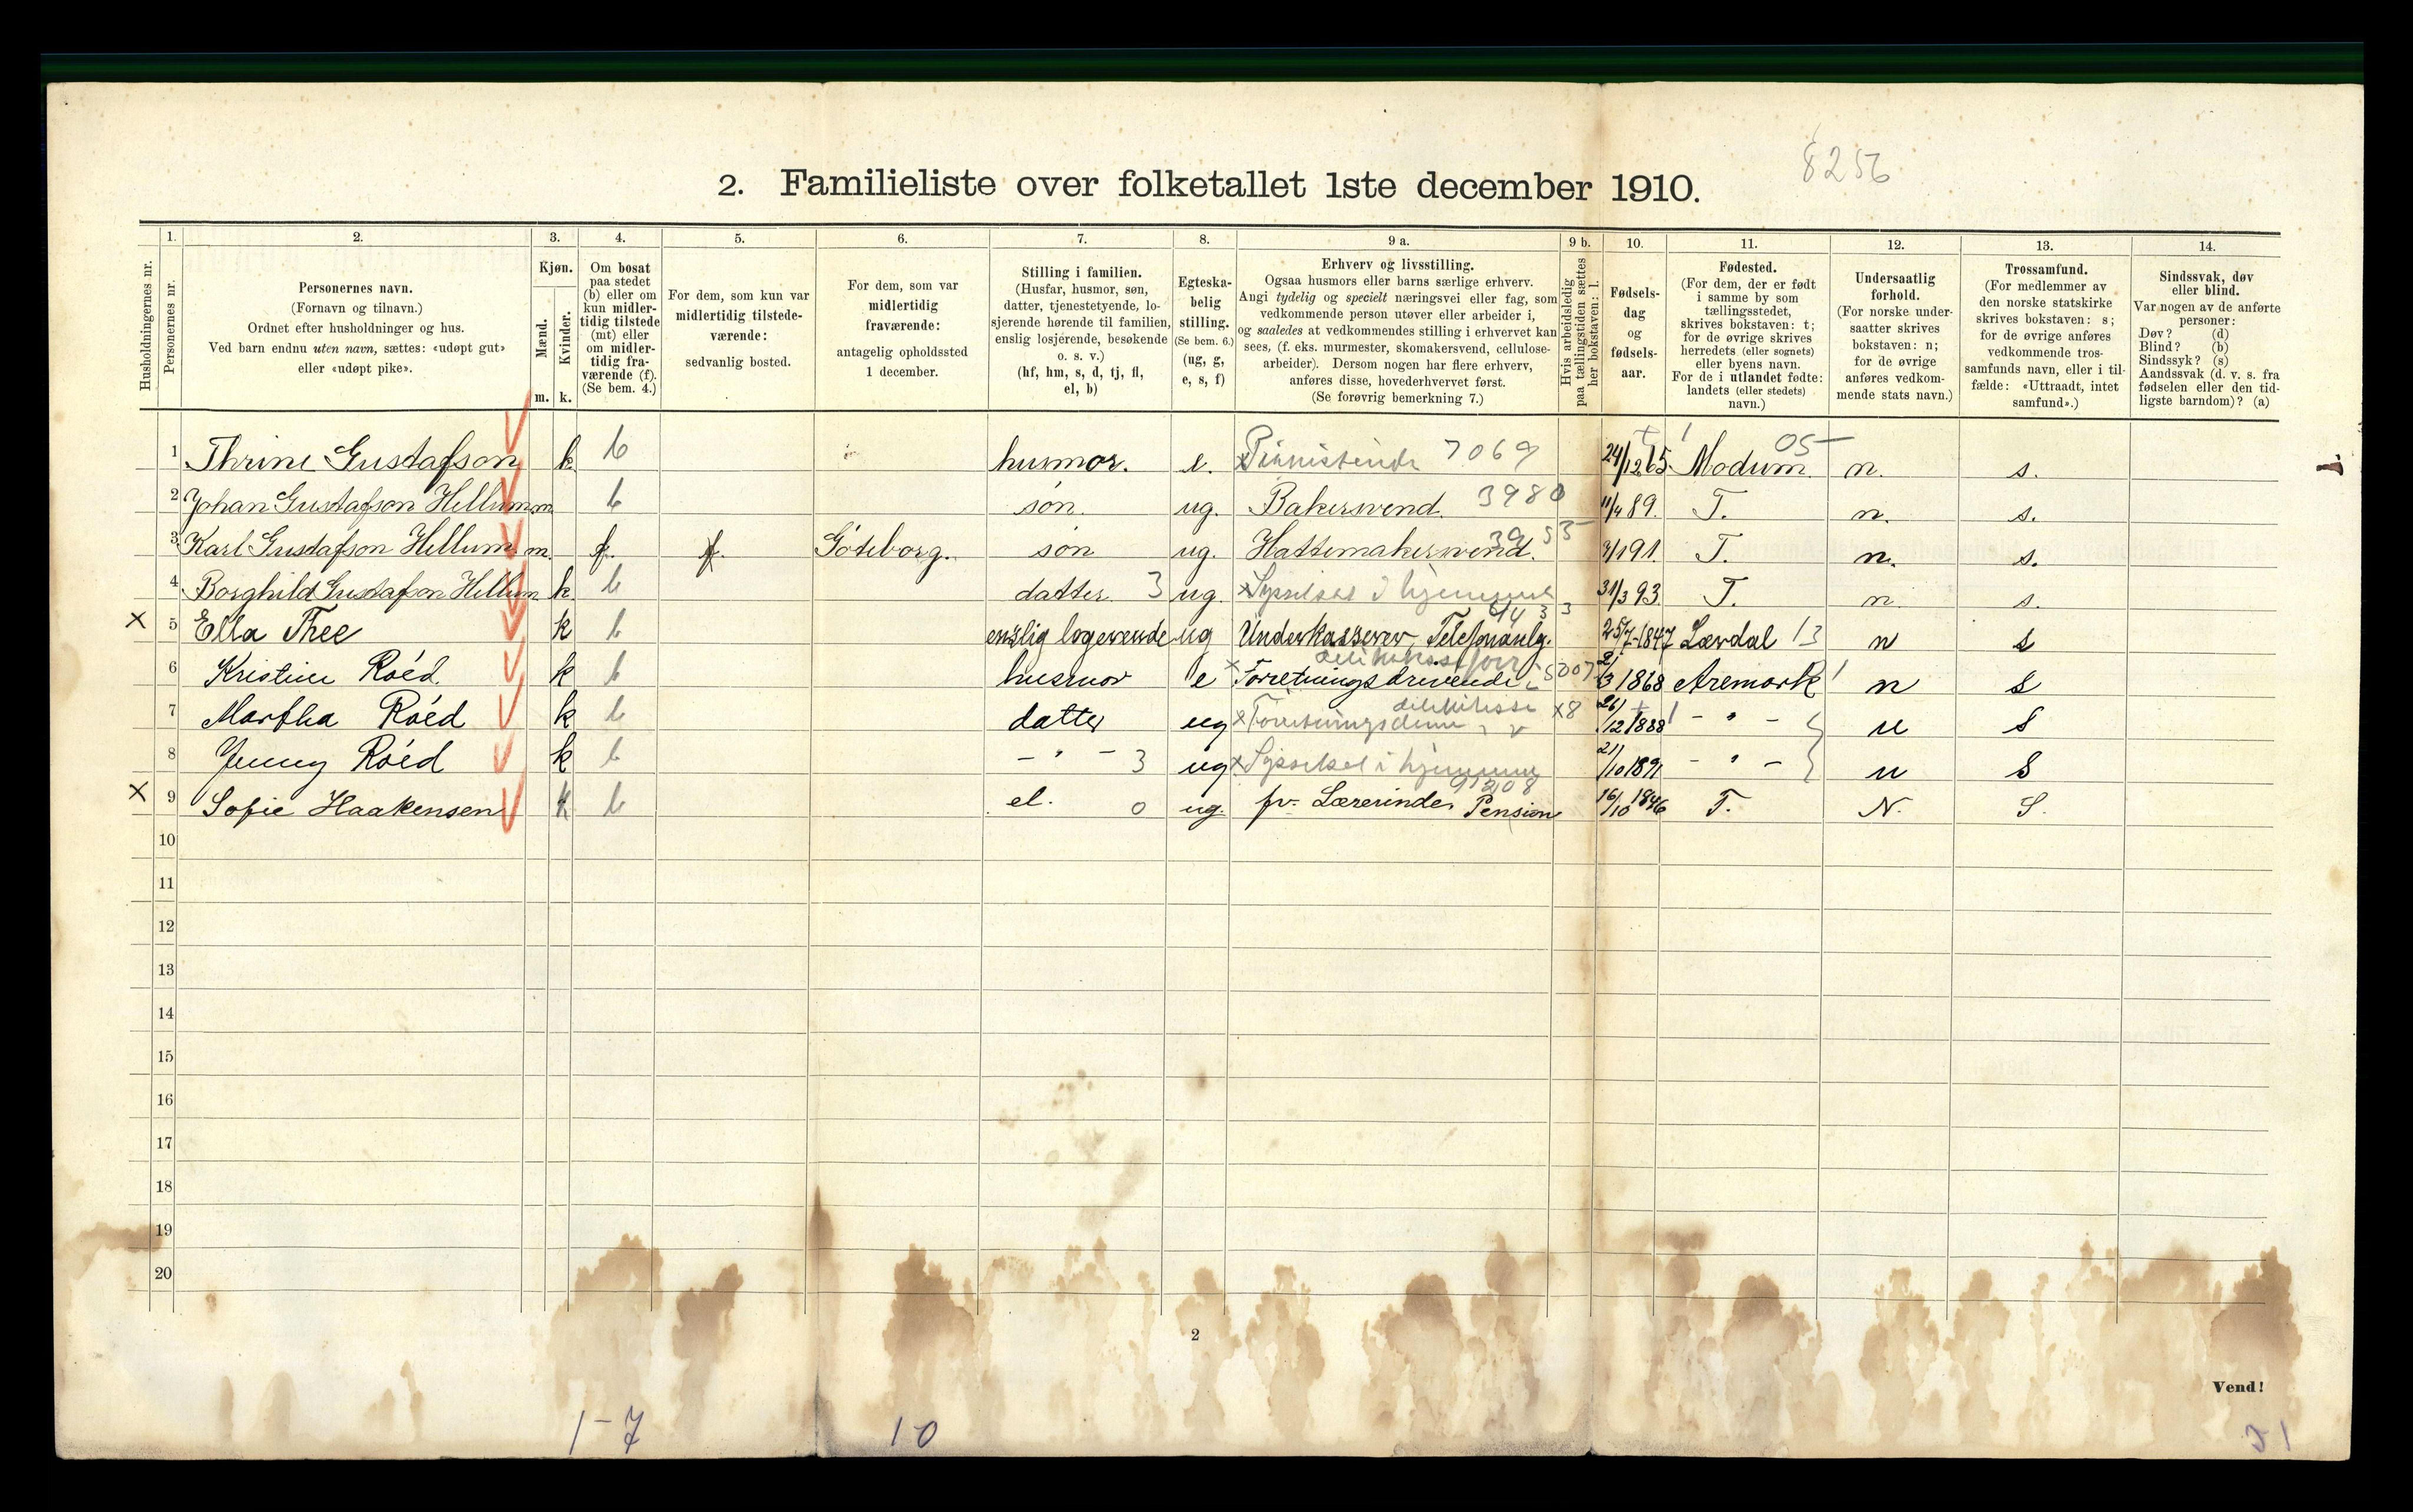 8256
2. Familieliste over folketallet 1ste december 1910.
Husholdningernes nr.
1. Personernes nr.
2. Personernes navn. (Fornavn og tilnavn.) Ordnet efter husholdninger og hus. Ved barn endnu uten navn, sættes: «udøpt gut» eller «udøpt pike».
3. Kjøn. Mænd. m. Kvinder. k.
4. Om bosat paa stedet (b) eller om kun midlertidig tilstede (mt) eller om midlertidig fraværende (f). (Se bem. 4.)
5. For dem, som kun var midlertidig tilstedeværende: sedvanlig bosted.
6. For dem, som var midlertidig fraværende: antagelig opholdssted 1 december.
7. Stilling i familien. (Husfar, husmor, søn, datter, tjenestetyende, losjerende hørende til familien, enslig losjerende, besøkende o. s. v.) (hf, hm, s, d, tj, fl, el, b)
8. Egteskabelig stilling. (Se bem. 6.) (ug, g, e, s, f)
9 a. Erhverv og livsstilling. Ogsaa husmors eller barns særlige erhverv. Angi tydelig og specielt næringsvei eller fag, som vedkommende person utøver eller arbeider i, og saaledes at vedkommendes stilling i erhvervet kan sees, (f. eks. murmester, skomakersvend, cellulosearbeider). Dersom nogen har flere erhverv, anføres disse, hovederhvervet først. (Se forøvrig bemerkning 7.)
9 b. Hvis arbeidsledig paa tællingstiden sættes her bokstaven: l.
10. Fødselsdag og fødselsaar.
11. Fødested. (For dem, der er født i samme by som tællingsstedet, skrives bokstaven: t; for de øvrige skrives herredets (eller sognets) eller byens navn. For de i utlandet fødte: landets (eller stedets) navn.)
12. Undersaatlig forhold. (For norske undersaatter skrives bokstaven: n; for de øvrige anføres vedkommende stats navn.)
13. Trossamfund. (For medlemmer av den norske statskirke skrives bokstaven: s; for de øvrige anføres vedkommende trossamfunds navn, eller i tilfælde: «Uttraadt, intet samfund».)
14. Sindssvak, døv eller blind. Var nogen av de anførte personer: Døv? (d) Blind? (b) Sindssyk? (s) Aandssvak (d. v. s. fra fødselen eller den tidligste barndom)? (a)
1 Thrine Gustafson k b husmor. e. 7069 24/12 65 Modum 05 n. s.
2 Johan Gustafson Hellum m b søn. ug. Bakersvend. 3980 11/4 89. T. n. s.
3 Karl Gustafson Hellum m. f. f. Göteborg. søn ug. Hattemakersvend. 3955 9/1 91. T. n. s.
4 Borghild Gustafson Hellum k b datter. 3 ug. x Sysselsat i hjemmet 31/3 93. T. n. s.
x 5 Ella Thee k b enslig logerende ug Underkasserer, Telefonanlg. 25/7-1847 Lærdal 13 n s
6 Kristine Roéd k b husmor e x Forretningsdrivende 2/3 1868 Aremark n s
7 Martha Roéd k b datter ug x Forretningsdame delikatesse x8 26/12 1888 - " - n s
8 Jenny Roéd k b - " - 3 ug x Sysselsat i hjemmet 21/10 1891 - " - n s
x 9 Sofie Haakensen k b el. 0 ug. fv. Lærerinde, Pension 16/10 1846 T. N. S.
10
11
12
13
14
15
16
17
18
19
20
2
Vend!
1-7
10
31